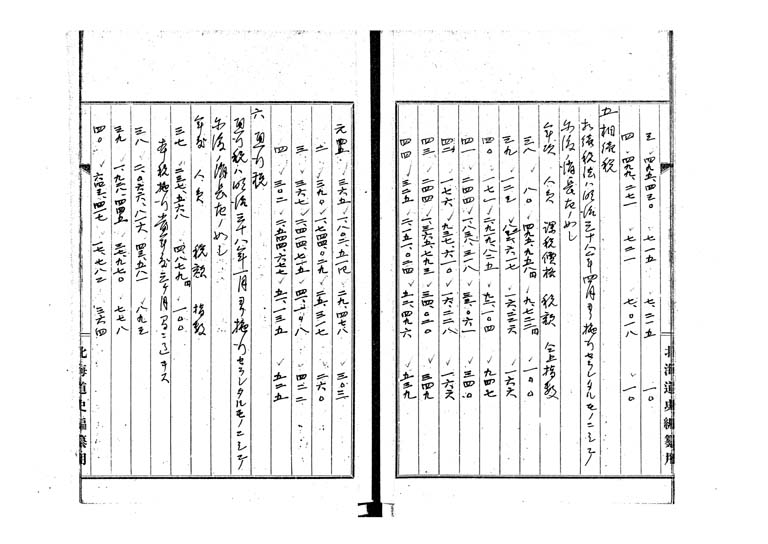 三 四九五、四三〇 七一五 七二一五 一〇
四 四九九、二七一 七二一 七〇一八 一〇
五 相続税
相続税法ハ明治三十八年四月ヨリ施行セラレタルモノニシテ
尓後ノ消長左ノ如シ
年次 人員 課税價格 税額 仝上指数
三八 八〇 四九五、九五八円 九、七二二円 一〇〇
三九 一二三 六一七 一六、三三六 一六六
四〇 一七一 二、九九八、八二五 九二、一〇四 九四七
四一 二四四 八三八、三一八 三三、〇六一 三四〇
四二 一七六 九三七、六一〇 一六、二二八 一六六
四三 二四四 一、三六五、七九三 三四、〇二〇 三四九
四四 三二五 二、一五一、〇二四 五二、四九六 五三九
北海道史編纂用
元 三六五 一、八〇二、五一四 二九、四七八 三〇三
二 三九〇 一、七四四、〇二九 二五、三一七 二六〇
三 三六七 二、四一四、七一五 四一、一一八 四二二
四 三〇二 二、五四四、六六七 五一、一三五 五二五
六 通行税
通行税ハ明治三十八年一月ヨリ施行セラレタルモノニシテ
尓後ノ消長左ノ如シ
年次 人員 税額 指数
三七 二三七、五六八 四、八七九円 一〇〇
本税施行 年分三ヶ月
三八 二、〇六六、八一六 四三、五八一 八九三
三九 一、九六八、四四五 三七、九七〇 七七八
四〇 六四三、四一七 一七、七八二 三六四
北海道史編纂用